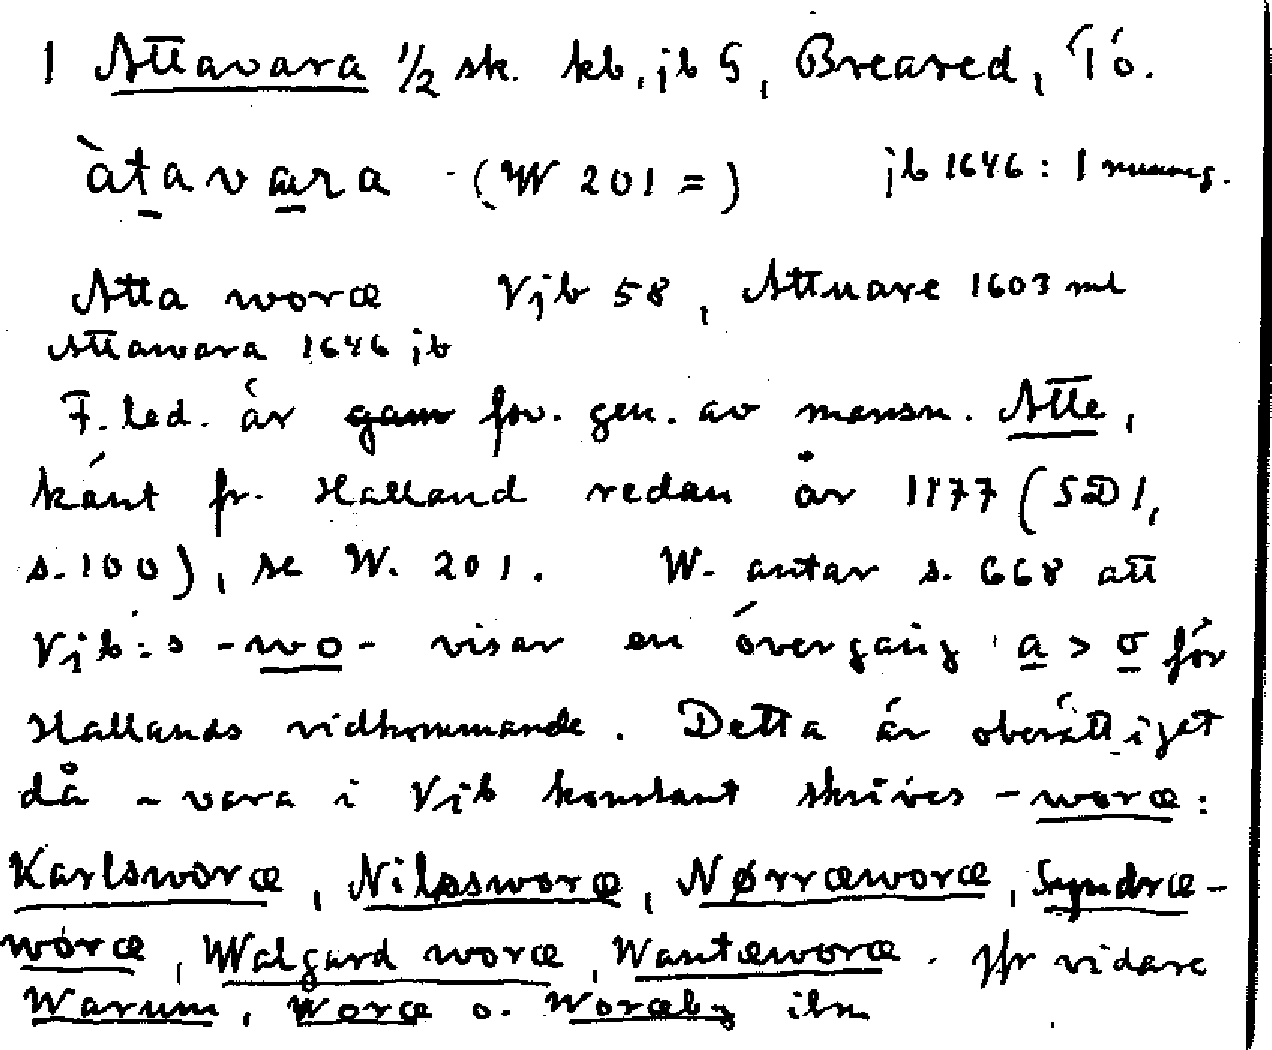 1 Attavara 1/2 sk. kb, jb G, Breared, Tö.
àtavara (W 201 =) jb 1646: 1 
Atta woræ Vjb 58, Attuare 1603 ml
Attawara 1646 jb
F. led. är fsv. gen. av mansn. Atte,
känt fr. Halland redan år 1177 (SD 1,
s. 100), se W. 201. W. antar s. 668 att
Vjb:s -wo- visar en övergång a > o för
Hallands vidkommande. Detta är oberättiget
då -vara i Vjb konstant skrives -woræ:
Karlsworæ, Nilssworæ, Nørræworæ, Syndræ-
woræ, Walgard woræ, Wantæworæ. Jfr vidare
Warum, Woræ o. Woræby ibm